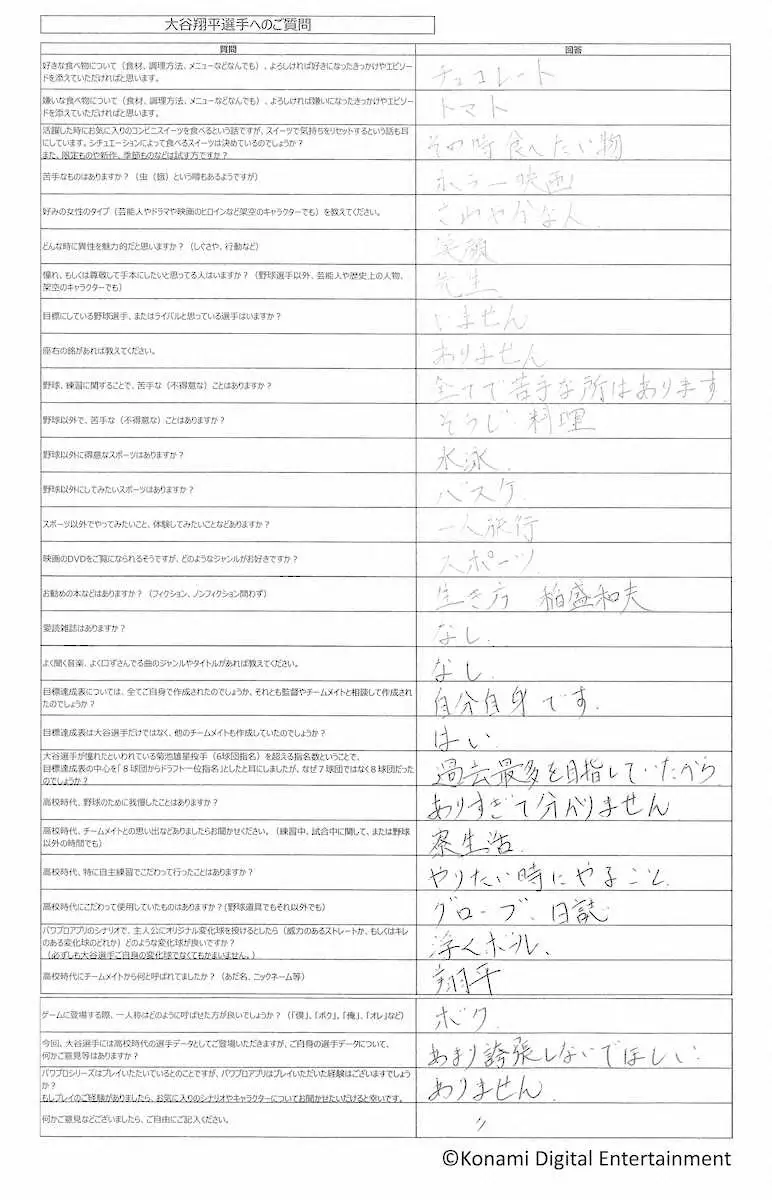 大谷翔平選手へのご質問
質問
回答
好きな食べ物について（食材、調理方法、メニューなどなんでも）、よろしければ好きになったきっかけやエピソー
ドを添えていただければと思います。
チョコレート
嫌いな食べ物について（食材、調理方法、メニューなどなんでも）、よろしければ嫌いになったきっかけやエピソー
ドを添えていただければと思います。
トマト
活躍した時にお気に入りのコンビニスイーツを食べるという話ですが、スイーツで気持ちをリセットするという話も耳
にしています。シチュエーションによって食べるスイーツは決めているのでしょうか？
また、限定ものや新作、季節ものなどは試す方ですか？
その時食べたい物
苦手なものはありますか？（虫（蛾）という噂もあるようですが）
ホラー映画
好みの女性のタイプ（芸能人やドラマや映画のヒロインなど架空のキャラクターでも）を教えてください。
さわやかな人
どんな時に異性を魅力的だと思いますか？（しぐさや、行動など）
笑顔
憧れ、もしくは尊敬して手本にしたいと思ってる人はいますか？（野球選手以外、芸能人や歴史上の人物、
架空のキャラクターでも）
先生
目標にしている野球選手、またはライバルと思っている選手はいますか？
いません
座右の銘があれば教えてください。
ありません
野球、練習に関することで、苦手な（不得意な）ことはありますか？
全てで苦手な所はあります
野球以外で、苦手な（不得意な）ことはありますか？
そうじ・料理
野球以外に得意なスポーツはありますか？
水泳.
野球以外にしてみたいスポーツはありますか？
バスケ
スポーツ以外でやってみたいこと、体験してみたいことなどありますか？
一人旅行
映画のDVDをご覧になられるそうですが、どのようなジャンルがお好きですか？
スポーツ
お勧めの本などはありますか？（フィクション、ノンフィクション問わず）
生き方 稲盛和夫
愛読雑誌はありますか？
なし.
よく聞く音楽、よく口ずさんでる曲のジャンルやタイトルがあれば教えてください。
なし.
目標達成表については、全てご自身で作成されたのでしょうか、それとも監督やチームメイトと相談して作成され
たのでしょうか？
自分自身です.
目標達成表は大谷選手だけではなく、他のチームメイトも作成していたのでしょうか？
はい.
大谷選手が憧れたといわれている菊池雄星投手（6球団指名）を超える指名数ということで、
目標達成表の中心を「８球団からドラフト一位指名」としたと耳にしましたが、なぜ７球団ではなく８球団だった
のでしょうか？
過去最多を目指していたから
高校時代、野球のために我慢したことはありますか？
ありすぎて分かりません
高校時代、チームメイトとの思い出などありましたらお聞かせください。（練習中、試合中に関して、または野球
以外の時間でも）
寮生活.
高校時代、特に自主練習でこだわって行ったことはありますか？
やりたい時にやること.
高校時代にこだわって使用していたものはありますか？（野球道具でもそれ以外でも）
グローブ、日誌
パワプロアプリのシナリオで、主人公にオリジナル変化球を授けるとしたら（威力のあるストレートか、もしくはキレ
のある変化球のどれか）どのような変化球が良いですか？
（必ずしも大谷選手ご自身の変化球でなくてもかまいません。）
浮くボール、
高校時代にチームメイトから何と呼ばれてましたか？（あだ名、ニックネーム等）
翔平
ゲームに登場する際、一人称はどのように呼ばせた方が良いでしょうか？（「僕」、「ボク」、「俺」、「オレ」など）
ボク
今回、大谷選手には高校時代の選手データとしてご登場いただきますが、ご自身の選手データについて、
何かご意見等はありますか？
あまり誇張しないでほしい.
パワプロシリーズはプレイいただいているとのことですが、パワプロアプリはプレイいただいた経験はございますでしょう
か？
もしプレイのご経験がありましたら、お気に入りのシナリオやキャラクターについてお聞かせいただけると幸いです。
ありません.
何かご意見などございましたら、ご自由にご記入ください。
〃
©Konami Digital Entertainment